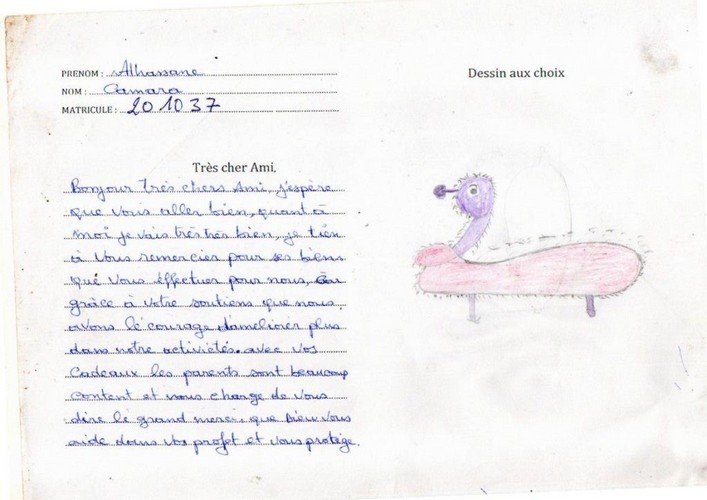 PRENOM : Alhassane
NOM : Camara
MATRICULE : 201037
Dessin aux choix
Très cher Ami,
Bonjour très chers Ami, j'espère
que vous aller bien, quant à
moi je vais très très bien, je tien
à vous remercier pour ses biens
que vous éffectuer pour nous, Car
grâce à votre soutiens que nous
avons le courage d'ameliorer plus
dans notre activietés. avec vos
Cadeaux les parents sont beaucoup
content et nous charge de vous
dire le grand merci, que Dieu vous
aide dans vos projet et vous protège.